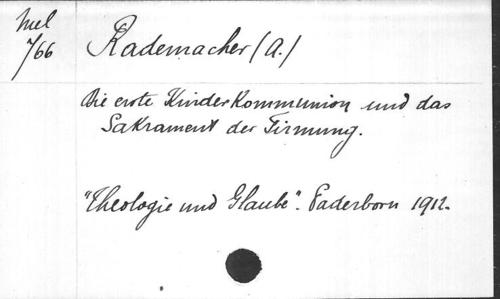 Mel
766
Rademacher (A.)
Die erste Kinderkommunion und das
Sakrament der Firmung.
"Theologie und Glaube". Paderborn 1912.